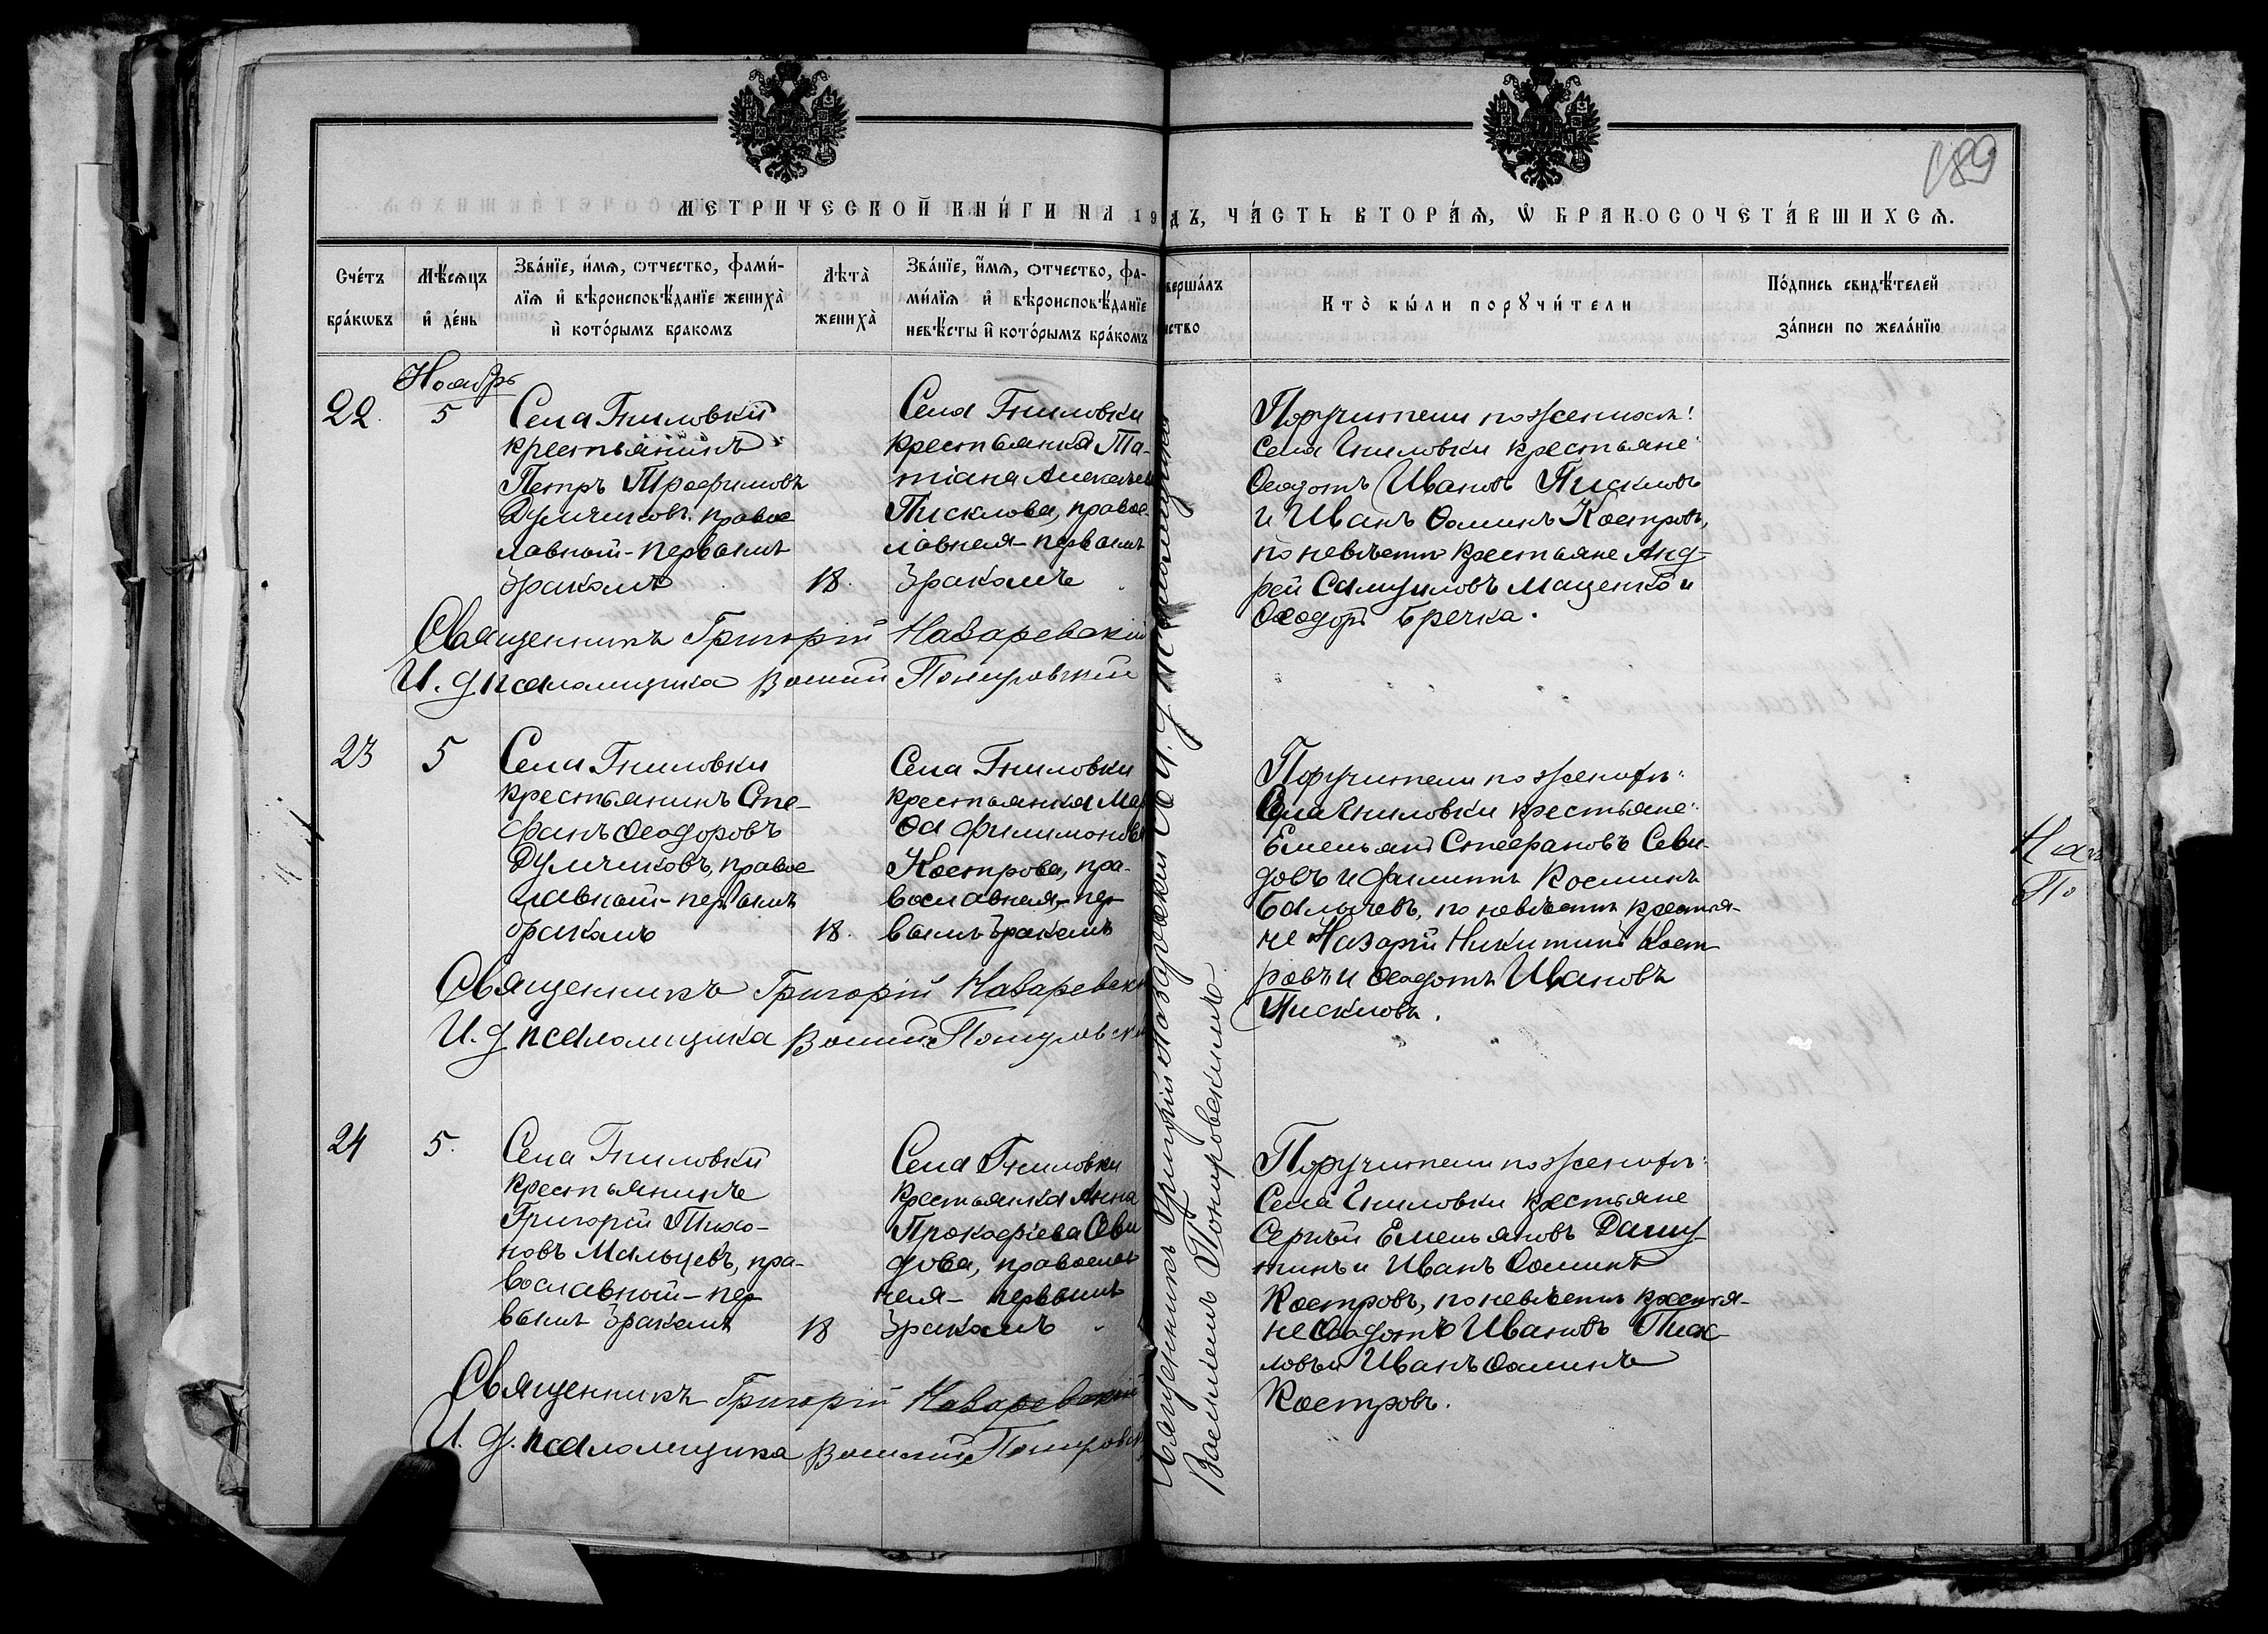 189
МЕТРИЧЕСКОЙ КНИ́ГИ НА 19
ДЪ, ЧА́СТЬ ВТОРА́Я, Ѡ БРАКОСОЧЕТА́ВШИХСЯ.
Сче́тъ
бра́кѡвъ
Мѣ́сяцъ
и҆ де́нь
Зва́нїе, и҆́мя, ѻтчество, фами́-
лїя и҆ вѣроисповѣ́данїе жениха̀
и҆ кото́рымъ бракомъ
Лѣта̀
жениха̀
Зва́нїе, и҆́мя, ѻтчество, фа-
ми́лїя и҆ вѣроисповѣ́данїе
невѣ́сты и҆ кото́рымъ бра́комъ
верша́лъ
нство
Кто̀ бы́ли порꙋчи́тели
По́дпись свидѣ́телей
за́писи по жела́нїю
Ноябрь
22.
5
Села Гниловки
крестьянинъ
Петръ Трофимовъ
Думчиковъ, правос
лавный - первымъ
бракомъ
18.
Села Гниловки
крестьянка Та-
тіана
Писклова, правос-
лавная - первымъ
бракомъ
Поручители по женихѣ:
села Гниловки крестьяне
Ѳеодотъ Ивановъ Пискловъ
и Иванъ Ѳоминъ Костровъ,
по невѣстѣ крестьяне Анд-
рей Самуиловъ Маценко и
Ѳеодоръ Бречка.
Священникъ Григорій Назаревскій
И. д. псаломщика
23
5
Села Гниловки
крестьянинъ Сте-
фанъ Ѳеодоровъ
Думчиковъ, правос
лавный - первымъ
бракомъ
18.
Села Гниловки
крестьянка Мар
ѳа Филимонова
Кострова, пра-
вославная, - пер-
вымъ бракомъ
Поручители по женихѣ:
Села Гниловки крестьяне:
Емельянъ Стефановъ Севи-
довъ и Филиппъ Косминъ
по невѣстѣ крестья-
не Назарій Никитинъ Кост
ровъ и Ѳеодотъ Ивановъ
Пискловъ.
Священникъ Григорій Назаревскі
И. д. псаломщика
24
5.
Села Гниловки
крестьянинъ
Григорій Тихо-
новъ Мальцевъ, пра-
вославный - пер-
вымъ бракомъ
18
Села Гниловки
крестьянка Анна
Прокофіева Севи
дова, православ
ная - первымъ
бракомъ
Поручители по женихѣ:
Села Гниловки крестьяне
Сергѣй Емельяновъ Дашу-
тинъ и Иванъ Ѳоминъ
Костровъ, по невѣстѣ крестья-
не Ѳеодотъ Ивановъ Писк-
ловъ и Иванъ Ѳоминъ
Костровъ.
Священникъ Григорій Назаревскій
И. д. псаломщика
Священникъ Григорій Назаревскій со И. д. псаломщика
Василіемъ Понировскимъ